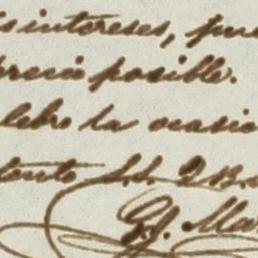 sintereses, pu
posible.
lebro la ocasio
tento S.S. Q.B.
G. J. Mar